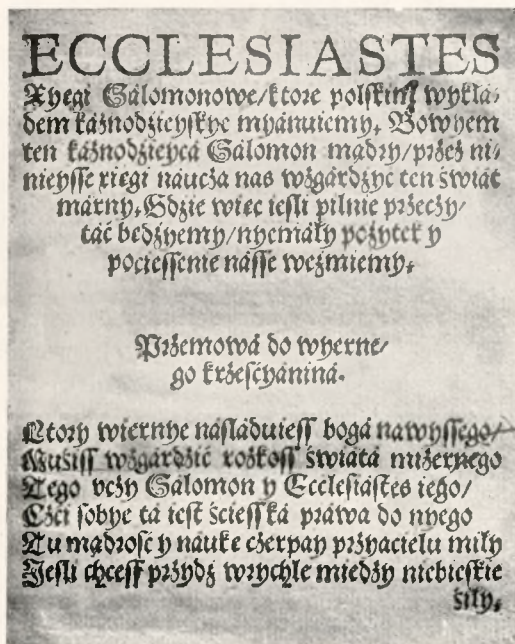 ECCLESIASTES
Xyęgi Sálomonowe/ktore polskim wykłá⸗
dem káznodzieyskye myánuiemy. Bowyem
ten káznodzieycá Sálomon mądry/przez ni⸗
nieysse xięgi náucża nas wżgárdżyć ten świát
márny. Gdzie więc iesli pilnie przeczy⸗
táć będżyemy/nyemáły pożytek y
pociessenie násse weźmiemy.
Przemowá do wyerne⸗
go krześćyániná.
Ktory wiernye násláduiess bogá nawyssego/
Musiss wżgárdzić roskoss świátá mizernego
Tego vczy Sálomon y Ecclesiástes iego/
Czći sobye tá iest ścieszká práwa do nyego
Tu mądrość y náukę czerpay przyiacielu miły
Jesli chcess przydź wrychle miedzy niebieskie
siły.